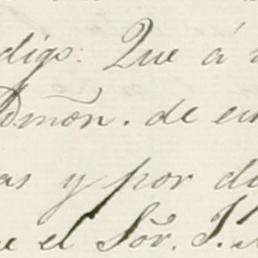 digo: Que á
Admõn. de
as y por
e el Sõr. J.